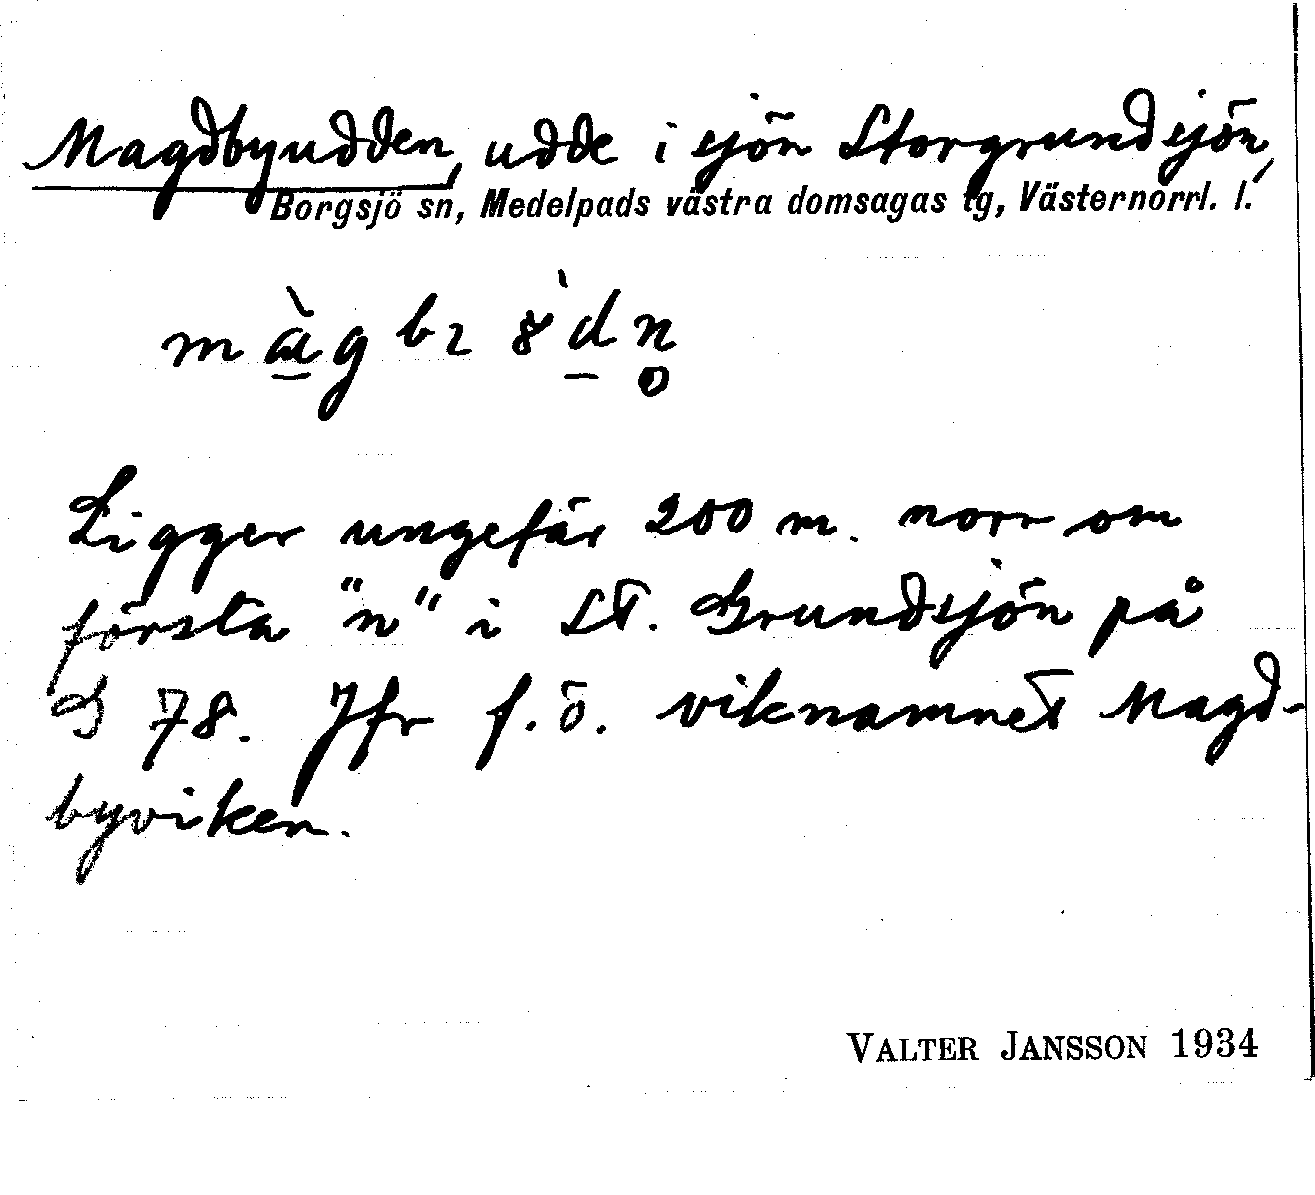 Magdbyudden, udde i sjön Storgrundsjön,
Borgsjö sn, Medelpads västra domsagas tg, Västernorrl. l.
Ligger ungefär 200 m. norr om
första "n" i St. Grundsjön på
G 78. Jfr f. ö. viknamnet Magd-
byviken.
VALTER JANSSON 1934